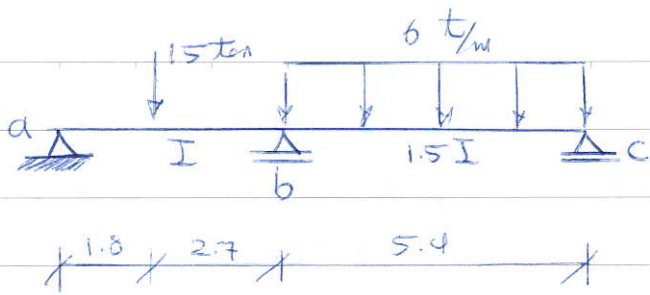 15 ton
6 t/m
a
I
1.5 I
c
b
1.8
2.7
5.4